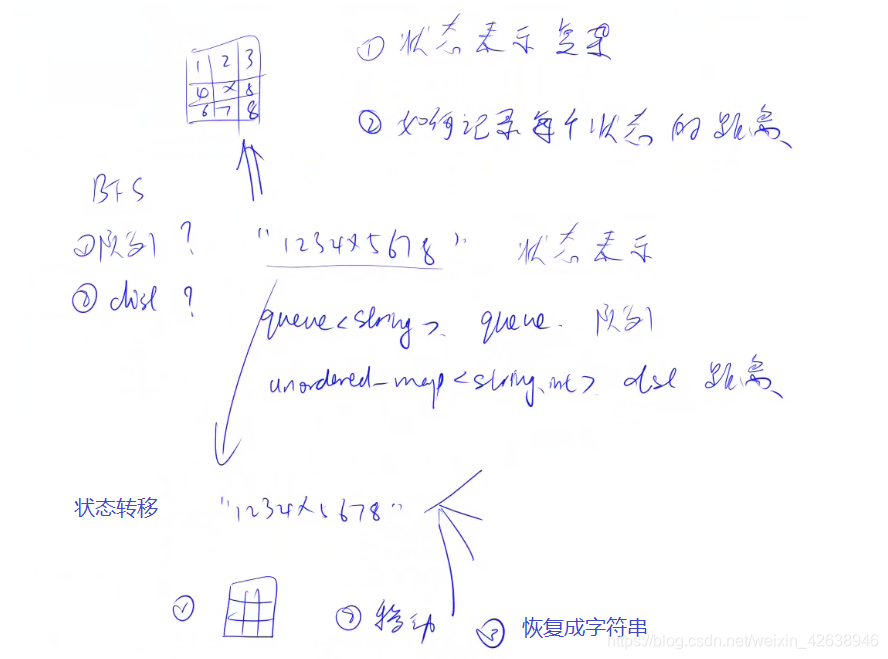 ① 状态表示复杂
1 2 3
4 x 5
6 7 8
② 如何记录每个状态的距离
BFS
①队列 ? "1234x5678" 状态表示
② dist ?
queue<string> queue. 队列
unordered_map<string, int> dist 距离
状态转移 "1234x5678"
① ② 移动 ③ 恢复成字符串
https://blog.csdn.net/weixin_42638946